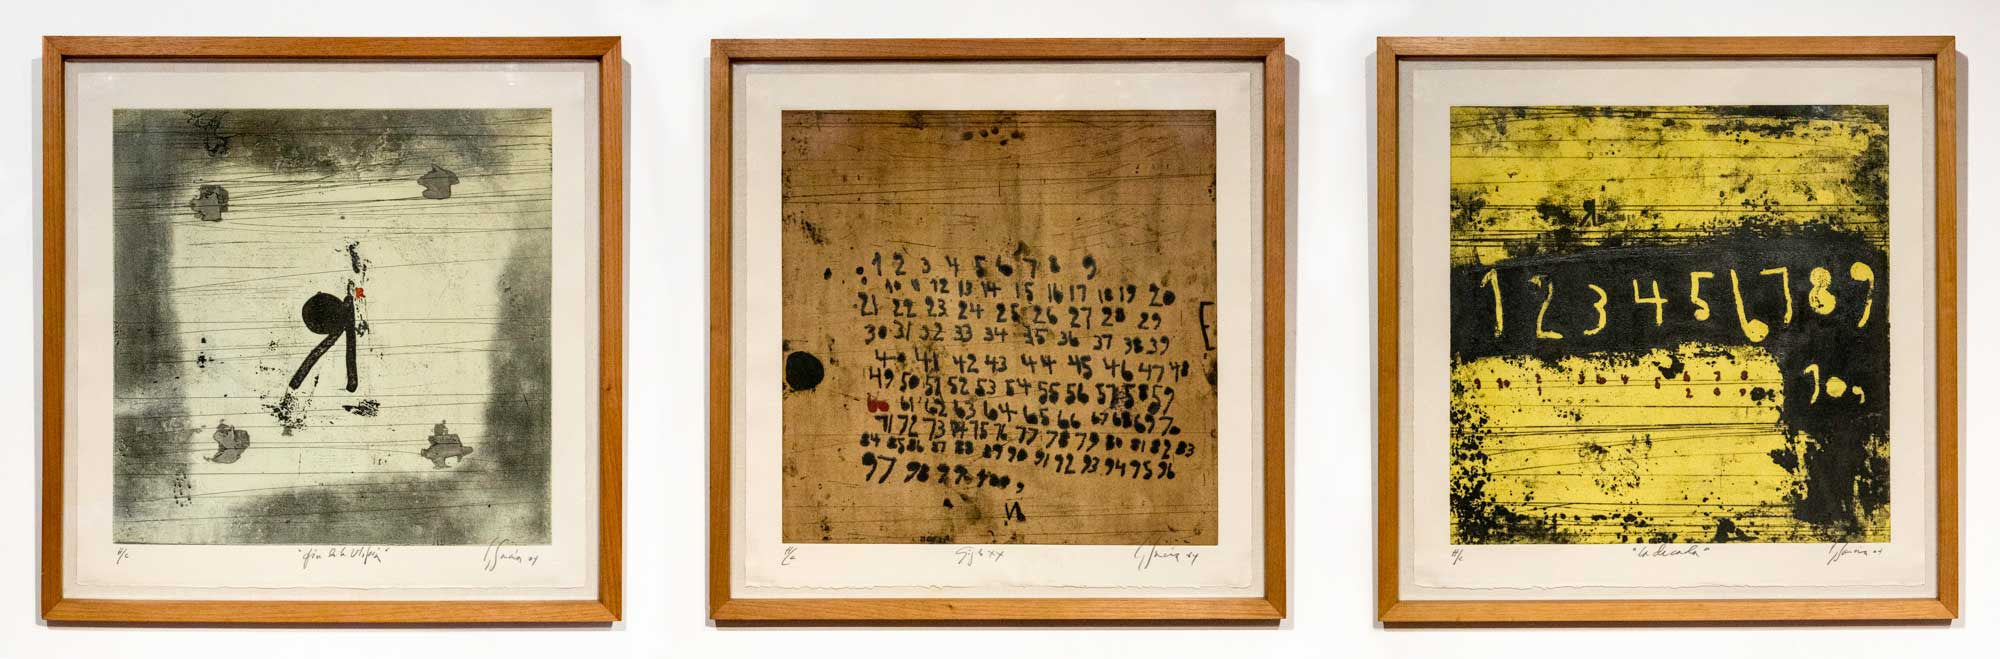 H/C "fin de la Utopía"
1 2 3 4 5 6 7 8 9
10 11 12 13 14 15 16 17 18 19 20
21 22 23 24 25 26 27 28 29
30 31 32 33 34 35 36 37 38 39
40 41 42 43 44 45 46 47 48
49 50 51 52 53 54 55 56 57 58 59
60 61 62 63 64 65 66 67 68 69 70
71 72 73 74 75 76 77 78 79 80 81 82 83
84 85 86 87 88 89 90 91 92 93 94 95 96
97 98 99 100,
И
H/C Siglo XX
1 2 3 4 5 6 7 8 9
10,
H/C "La decada"